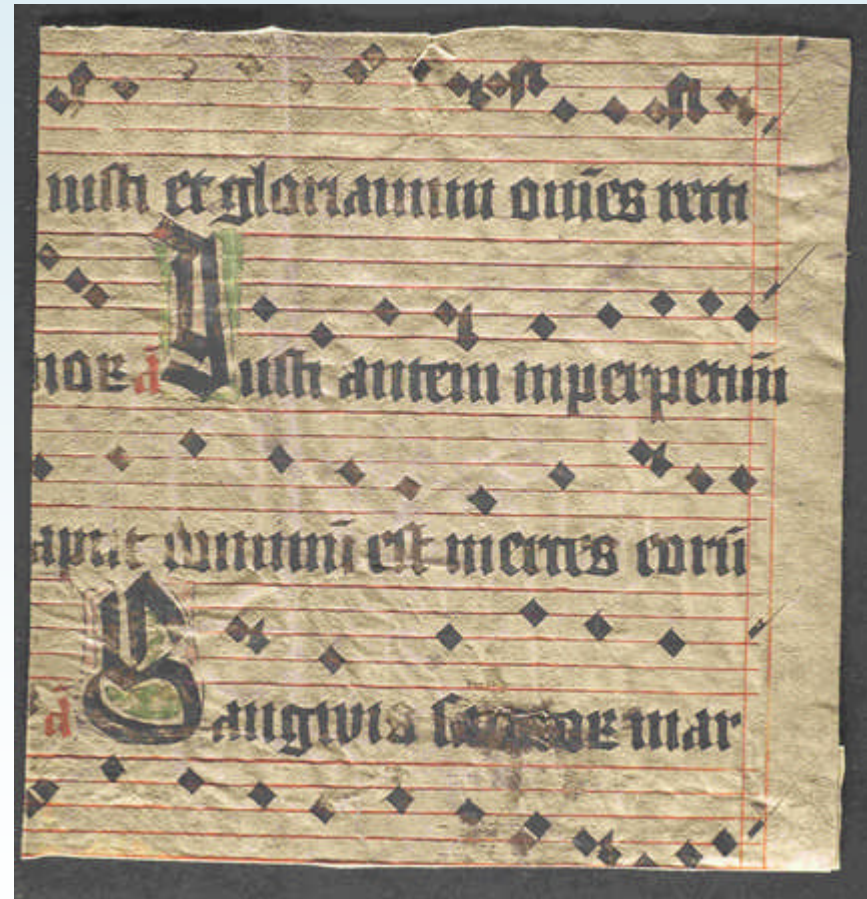 iusti et gloriamini om̄es recti
ā Justi autem inperpetuū
apud dominū est merces eorū
ā Sanguis sanctoꝝ mar